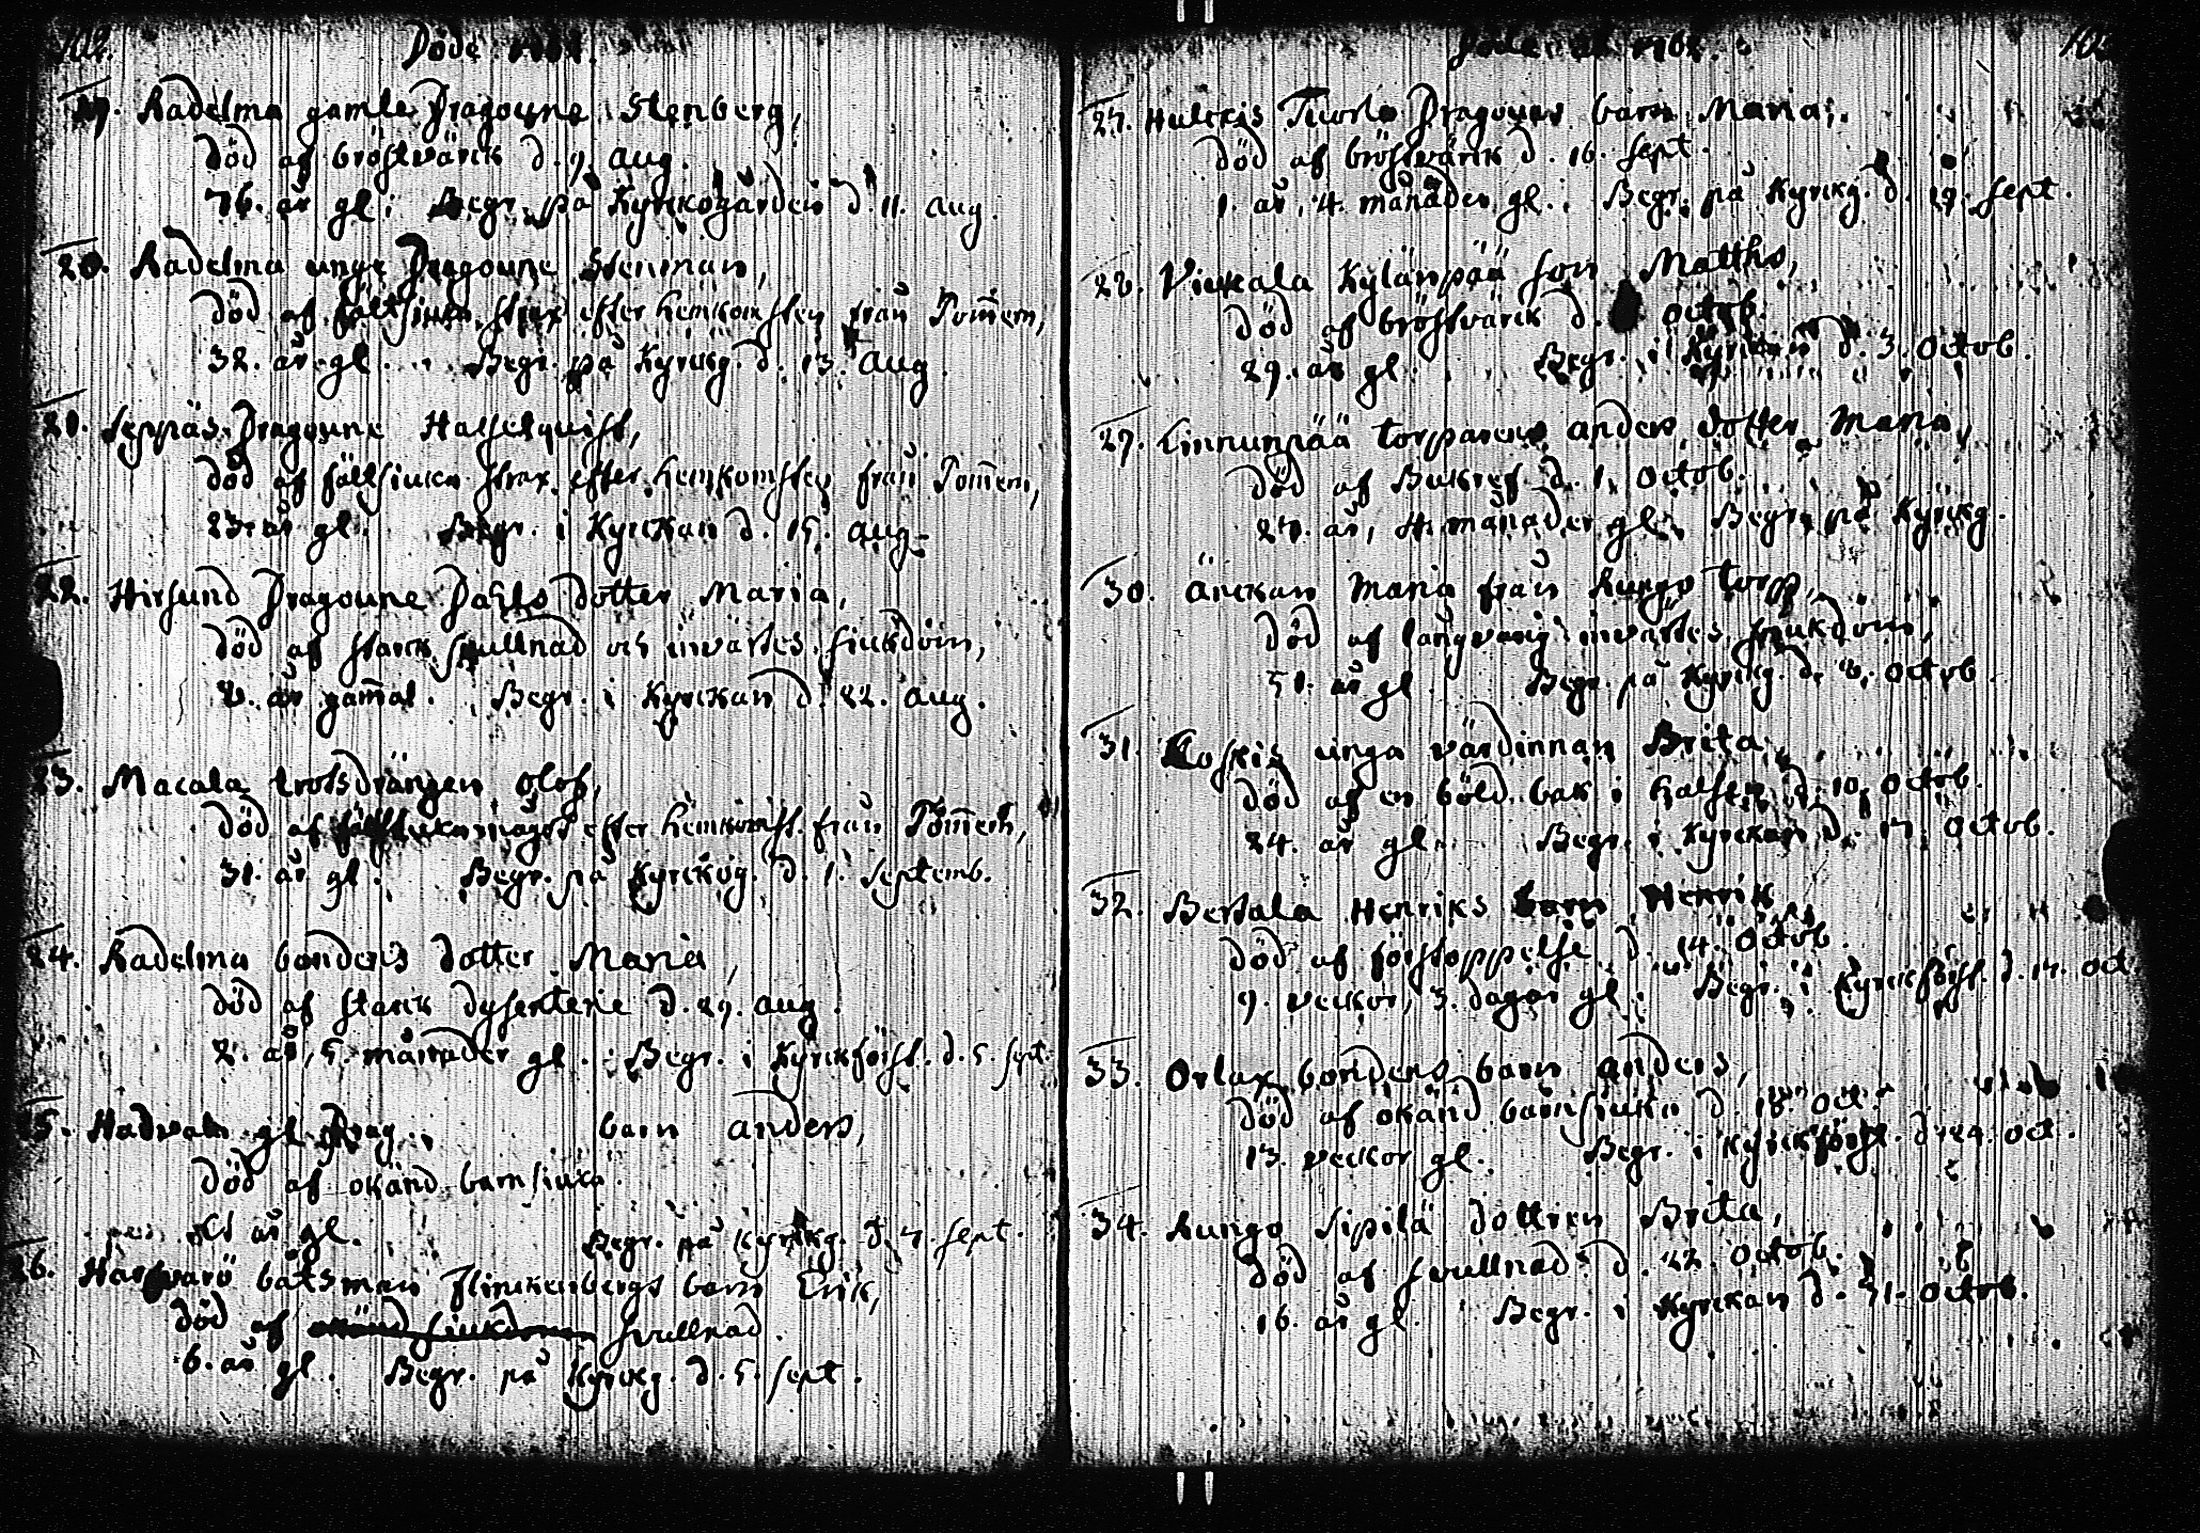 102.
Döde 1762.
19. Radelma gamle Dragoune Stenberg,
död af bröstvärck d. 9. Aug.
76. år gl: Begr. på Kyrckogården d. 11. Aug.
20. Radelma unge Dragoune Stenman,
död af fältsiuka strax efter hemkomsten från Pom̄ern,
32. år gl. Begr. på Kyrckg. d. 13. Aug
21. Seppäs Dragoune Hasselquist,
död af fältsiuka strax efter hemkomsten från Pom̄ern,
23. år gl. Begr. i Kyrckan d. 15. Aug.
22. Hirsund Dragoune Dahls dotter Maria,
död af starck svullnad och invärtes siukdom,
2. år gam̄al. Begr. i Kyrckan d. 22. Aug.
23. Macala trossdrängen Olof,
död af fältsiuka något efter hemkomst. från Pom̄ern,
31. år gl. Begr. på Kyrckog. d. 1. Septemb.
24. Radelma bondens dotter Maria,
död af starck dysenterie d. 29. Aug.
2. år, 5. månader gl. Begr. i Kyrckförst. d. 5. Sept.
25. gl Drag. barn Anders,
död af okänd barnsiuka.
år gl. Begr. på Kyrckg. d. 7. Sept.
26. båtsman Flinckenbergs barn Erik,
död af okänd siukdom svullnad.
6. år gl. Begr. på Kyrckg. d. 5. Sept.
Döde år 1762.
27. Dragouns barn Maria,
död af bröstvärck d. 16. Sept.
1. år, 4. månader gl. Begr. på Kyrckg. d. 19. Sept.
28. Kylänpää son Matths,
död af bröstvärck d. Octob.
29. år gl. Begr. i Kyrckan d. 3. Octob.
29. Linnunpää torparens Anders dotter Maria,
död af d. 1. Octob.
år, månader gl. Begr. på Kyrckg.
30. Änckan Maria från Rungo torp,
död af långvarig invärtes siukdom,
51. år gl. Begr. på Kyrckg. d. Octob.
31. Koskis unga värdinnan Brita,
död af en böld bak i halsen d. 10. Octob.
24. år gl. Begr. i Kyrckan d. 17. Octob.
32. Bertala Henriks barn Henrik
död af förstoppelse d. 14. Octob.
9. veckor, 3. dagar gl. Begr. i Kyrckförst. d. 17. Oct.
33. Orlax bondens barn Anders,
död af okänd barnsiuka d. 18. Oct.
13. veckor gl. Begr. i Kyrckförst. d. 24. Oct.
34. Rungo Sipilä dottren Brita,
död af svullnad d. 22. Octob.
16. år gl. Begr. i Kyrckan d. 31. Octob.